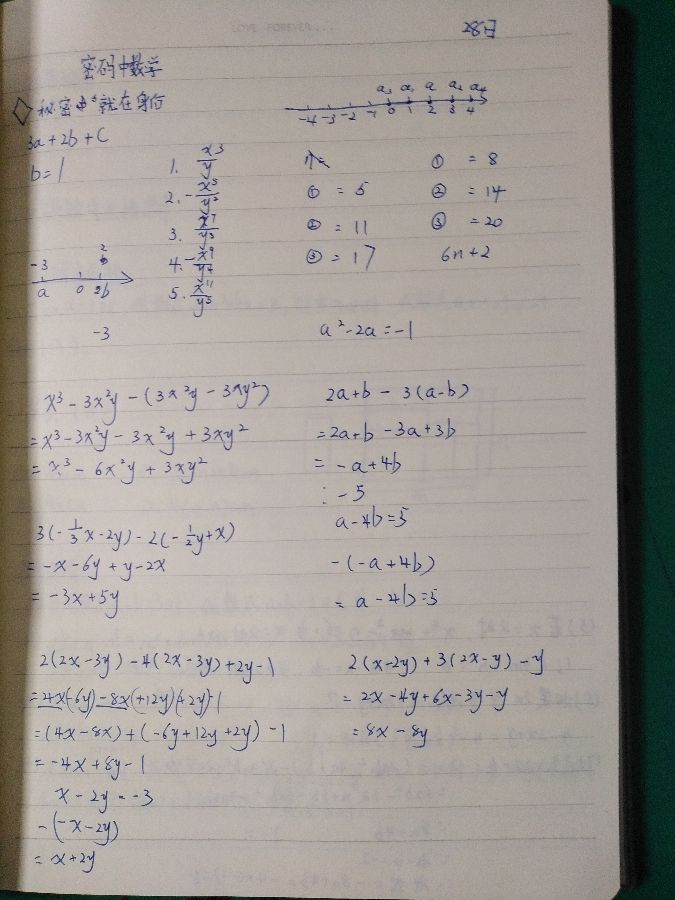 LOVE FOREVER...
28日
密码中数学
秘密中 就在身份
3a+2b+C
b=1
-4 -3 -2 -1 0 1 2 3 4
1. x³/y
2. -x⁵/y²
3. x⁷/y³
4. -x⁹/y⁴
5. x¹¹/y⁵
① = 5
② = 11
③ = 17
① = 8
② = 14
③ = 20
6n+2
-3 2
a 0 2b
-3
a²-2a=-1
x³-3x²y-(3x²y-3xy²)
=x³-3x²y-3x²y+3xy²
=x³-6x²y+3xy²
2a+b-3(a-b)
=2a+b-3a+3b
=-a+4b
-5
a-4b=5
-(-a+4b)
=a-4b=5
3(-1/3x-2y)-2(-1/2y+x)
=-x-6y+y-2x
=-3x+5y
2(2x-3y)-4(2x-3y)+2y-1
=4x(-6y)-8x(+12y)(+2y)-1
=(4x-8x)+(-6y+12y+2y)-1
=-4x+8y-1
x-2y=-3
-(-x-2y)
=x+2y
2(x-2y)+3(2x-y)-y
=2x-4y+6x-3y-y
=8x-8y